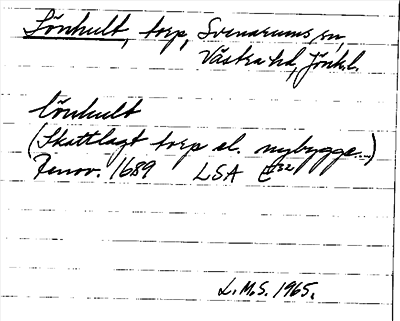 Lönhult, torp, Svenarums sn,
Västra hd, Jönk.l.
Lönhult
(Skattlagt torp el. nybygge.)
Renov. 1689 LSA E32
L.M.S. 1965.